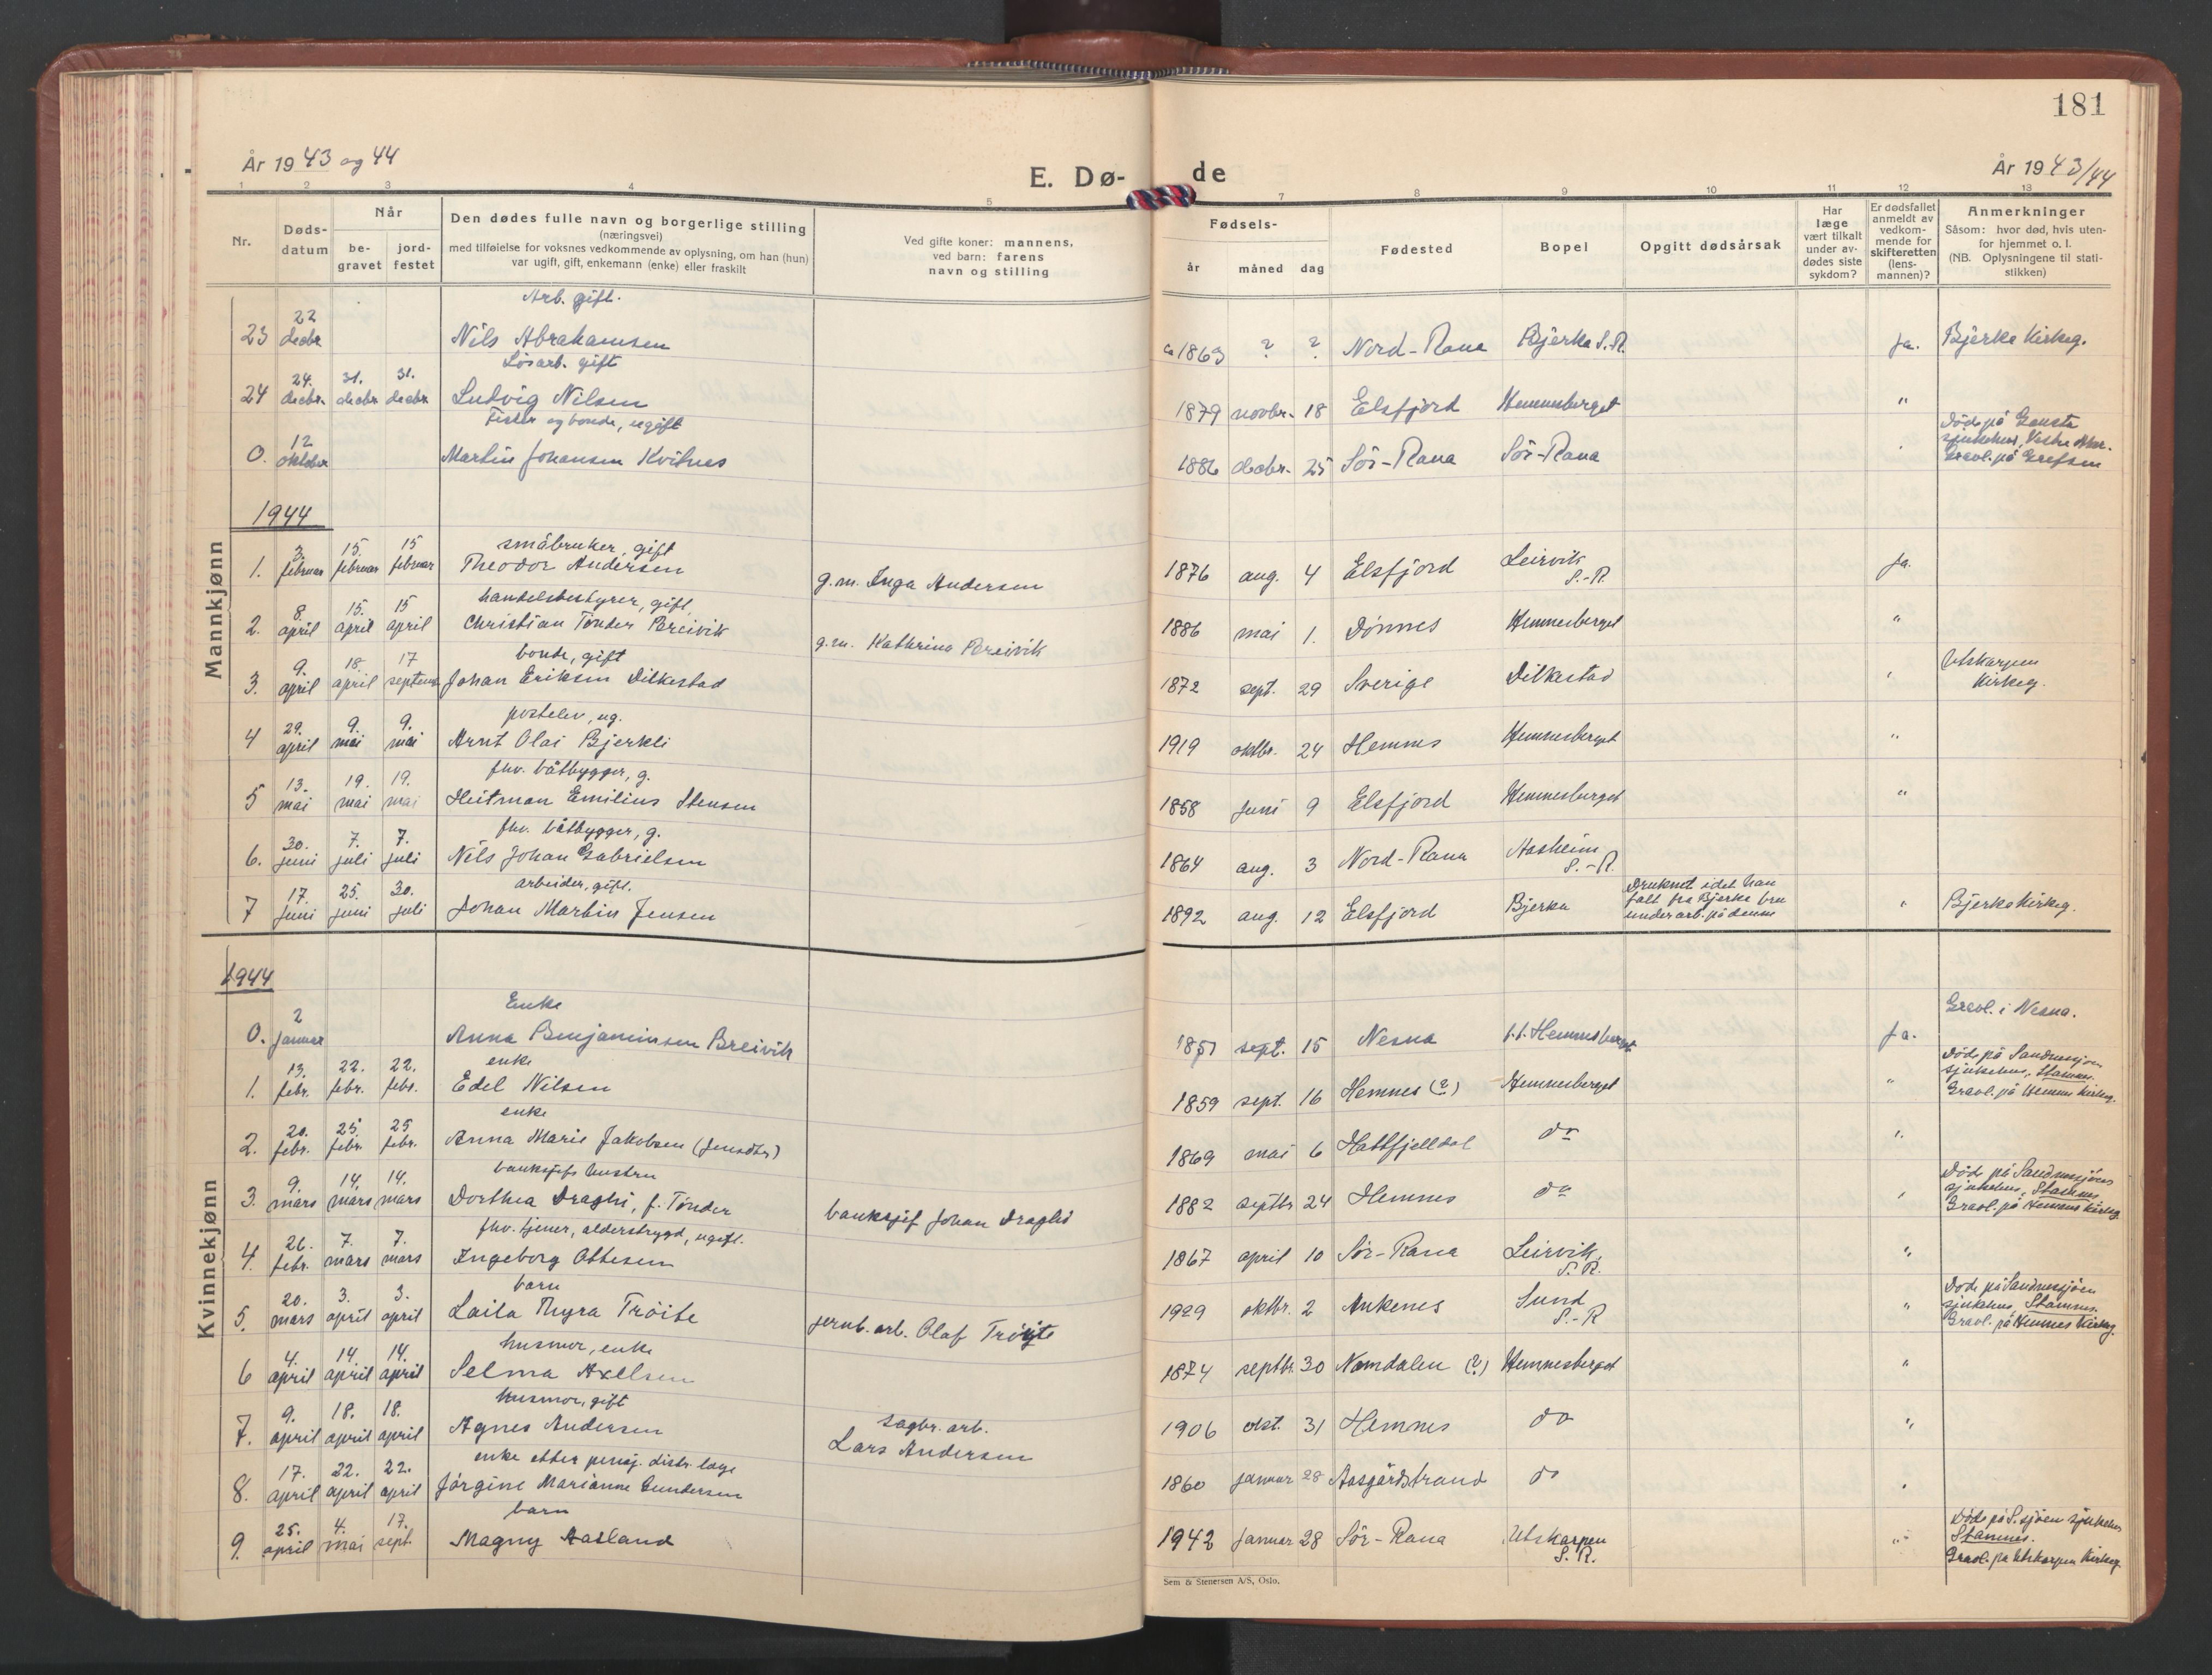 181
År 1943 og 44
E. Dø-
de
År 1943/44
1 2 3 4 5 7 8 9 10 11 12 13
Nr.
Døds-
datum
Når
be-
gravet
jord-
festet
Den dødes fulle navn og borgerlige stilling
(næringsvei)
med tilføielse for voksnes vedkommende av oplysning, om han (hun)
var ugift, gift, enkemann (enke) eller fraskilt
Ved gifte koner: mannens,
ved barn: farens
navn og stilling
Fødsels-
år måned dag
Fødested
Bopel
Opgitt dødsårsak
Har
læge
vært tilkalt
under av-
dødes siste
sykdom?
Er dødsfallet
anmeldt av
vedkom-
mende for
skifteretten
(lens-
mannen)?
Anmerkninger
Såsom: hvor død, hvis uten-
for hjemmet o. l.
(NB. Oplysningene til stati-
stikken)
Mannkjønn
Arb. gift.
23 22 decbr. Nils Abrahamsen ca 1863 ? ? Nord-Rana Bjerka S.R. ja. Bjerka Kirkeg.
Løsarb. gift
24 24. decbr. 31. decbr. 31. decbr. Ludvig Nilsen 1879 novbr. 18 Elsfjord Hemnesberget "
Fisker og bonde, ugift
0. 12 oktober Martin Johansen Kvitnes 1886 decbr. 25 Sör-Rana Sör-Rana
Död på Gausta
sjukehus, Vestre Aker.
Gravl. på Grefsen
1944
småbruker, gift
1. 3. februar 15. februar 15 februar Theodor Andersen g.m. Inga Andersen 1876 aug. 4 Elsfjord Leirvik S.-R. ja.
handelsbestyrer, gift
2. 8. april 15. april 15 april Christian Tönder Breivik g.m. Kathrine Breivik 1886 mai 1. Dönnes Hemnesberget "
bonde, gift
3. 9. april 18. april 17 septem. Johan Eriksen Dilkestad 1872 sept. 29 Sverige Dilkestad " Utskarpen
Kirkeg.
postelev, ug.
4 29. april 9. mai 9. mai Arnt Olai Bjerkli 1919 oktbr. 24 Hemnes Hemnesberget "
fhv. båtbygger, g.
5 13. mai 19. mai 19. mai Heitman Emilius Stensen 1858 juni 9 Elsfjord Hemnesberget "
fhv. båtbygger, g.
6. 30. juni 7. juli 7. juli Nils Johan Gabrielsen 1864 aug. 3 Nord-Rana Aasheim S.-R.
arbeider, gift.
7 17. juni 25. juni 30. juli Johan Martin Jensen 1892 aug. 12 Elsfjord Bjerka
Druknet idet han
falt fra Bjerka bru
under arb. på denne
" Bjerka Kirkeg.
Kvinnekjønn
1944
Enke
0. 2 januar Anna Benjaminsen Breivik 1851 sept. 15 Nesna Hemnesberget ja. Gravl. i Nesna.
enke
1. 13. febr. 22. febr. 22. febr. Edel Nilsen 1859 sept. 16 Hemnes (?) Hemnesberget "
Död på Sandnessjöen
sjukehus, Stamnes.
Gravl. på Hemnes Kirkeg.
enke
2. 20. febr. 25. febr. 25 febr. Anna Marie Jakobsen (Jensdtr) 1869 mai 6 Hattfjelldal do "
banksjefs hustru
3. 9. mars 14. mars 14. mars Dorthea Draghi, f. Tönder banksjef Johan Draghi 1882 septbr 24 Hemnes do "
Död på Sandnessjöens
sjukehus, Stamnes
Gravl. på Hemnes Kirkeg.
fhv. tjener, alderstrygd, ugift.
4. 26. febr. 7. mars 7. mars Ingeborg Ottesen 1867 april 10 Sör-Rana Leirvik, S.R. "
barn
5. 20. mars 3. april 3. april Laila Thyra Tröite jernb.arb. Olaf Tröite 1929 oktbr. 2 Ankenes Sund S.-R "
Död på Sandnessjöen
sjukehus, Stamnes.
Gravl. på Hemnes Kirkeg.
husmor, enke
6 4. april 14. april 14. april Selma Axelsen 1874 septbr. 30 Namdalen (?) Hemnesberget "
husmor, gift
7. 9. april 18. april 18. april Agnes Andersen sagbr. arb.
Lars Andersen 1906 okt. 31 Hemnes do "
enke etter pensj. distr. læge
8. 17. april 22. april 22. april Jörgine Marianne Gundersen 1860 januar 28 Aasgårdstrand do "
barn
9. 25. april 4. mai 17. sept. Magny Aasland 1942 januar 28 Sör-Rana Utskarpen S.R. "
Död på S.sjöen sjukehus
Stamnes.
Gravl. på Utskarpen Kirkeg.
Sem & Stenersen A/S, Oslo.